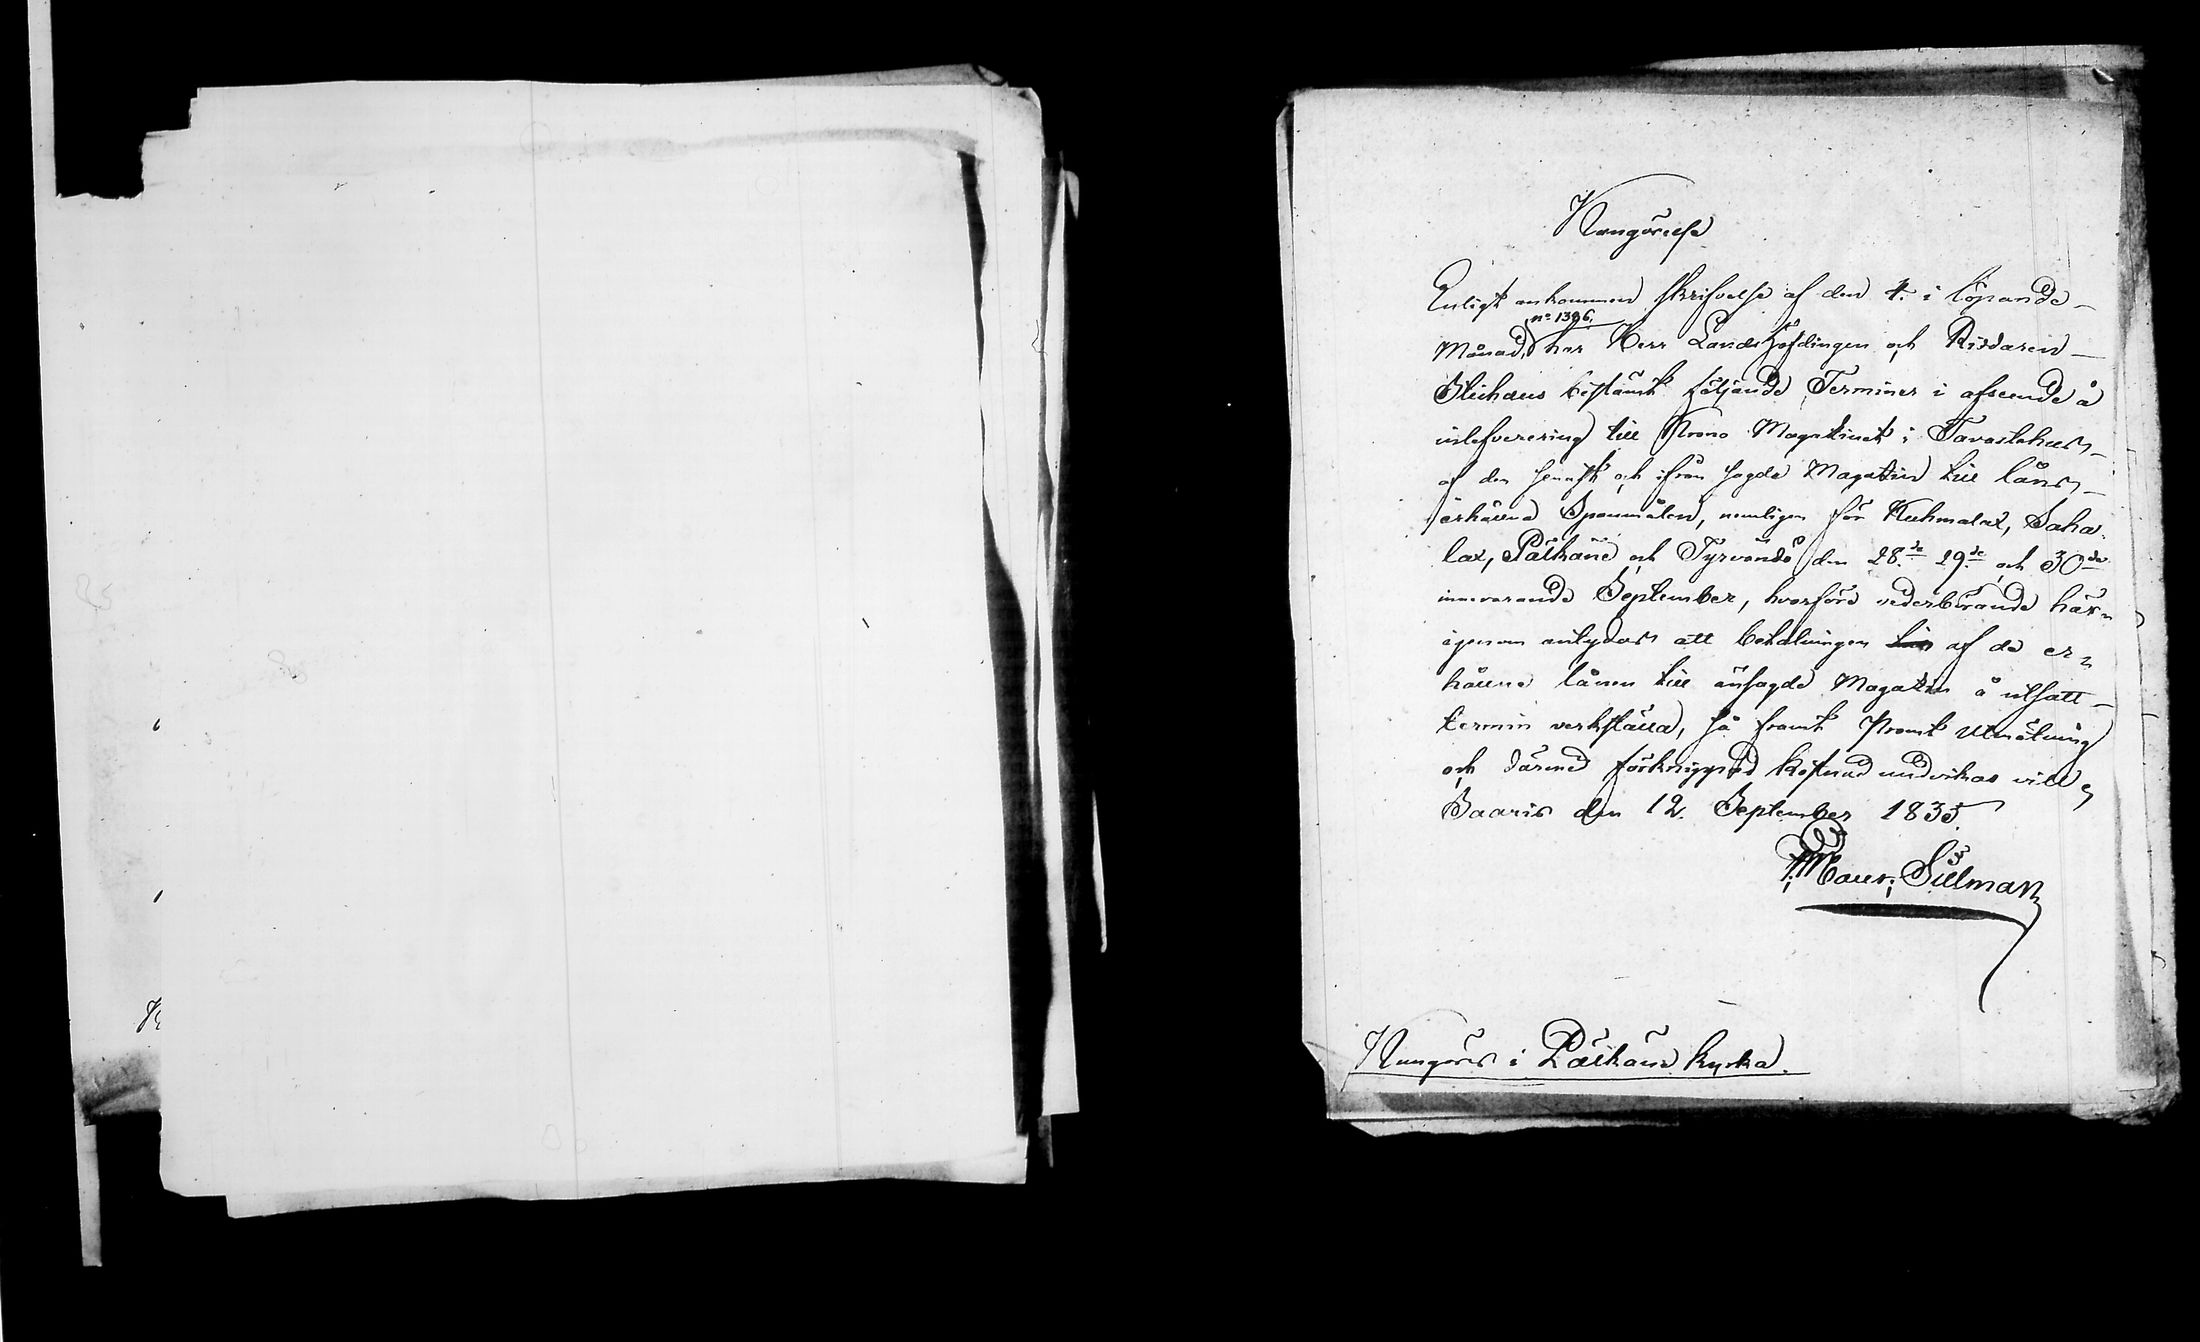 Kungörelse
Enligt ankommen skrifvelse af den 4. i löpande
Månad, n:o 1396. har Herr Landshöfdingen och Riddaren
Stichæus bestämt följande Terminer i afseende å
inlefverering till Krono Magatinet i Tavastehus,
af den senast och ifrån sagde Magatin till låns
erhållna Spanmålen, nemligen för Kuhmalax, Saha-
lax, Pälkäne och Tyrvändö den 28.de 29.de och 30de
innevarande September, hvarföre vederbörande här-
igenom antydas att betalningen af de er-
hållna lånen till ansagde Magatin å utsatt
termin verkställa, så framt Promt Utmätning
och därmed förknippad kostnad undvikas vill,
Saaris den 12. September 1833.
Maur: Sillman
Kungöres i Pälkäne kyrka.